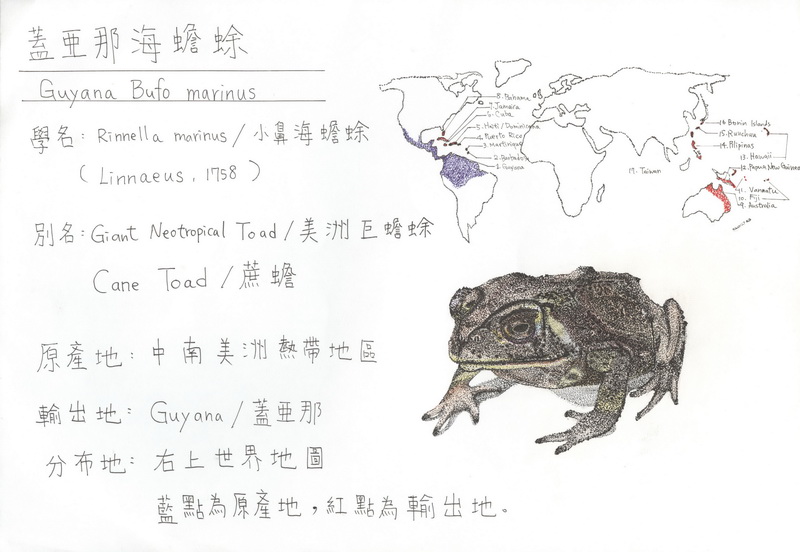 蓋亜那海蟾蜍
Guyana Bufo marinus
學名：Rinnella marinus / 小鼻海蟾蜍
( Linnaeus, 1758 )
別名：Giant Neotropical Toad / 美洲巨蟾蜍
Cane Toad / 蔗蟾
原產地：中南美洲熱帶地區
輸出地：Guyana / 蓋亜那
分布地：右上世界地圖
藍點為原產地，紅點為輸出地。
8. Bahama
7. Jamaica
6. Cuba
5. Haiti / Dominicana
4. Puerto Rico
3. Martinique
2. Barbados
1. Guyana
17. Taiwan
16. Bonin Islands
15. Ryuchua
14. Pilipinas
13. Hawaii
12. Papua New Guinea
11. Vanuatu
10. Fiji
9. Australia